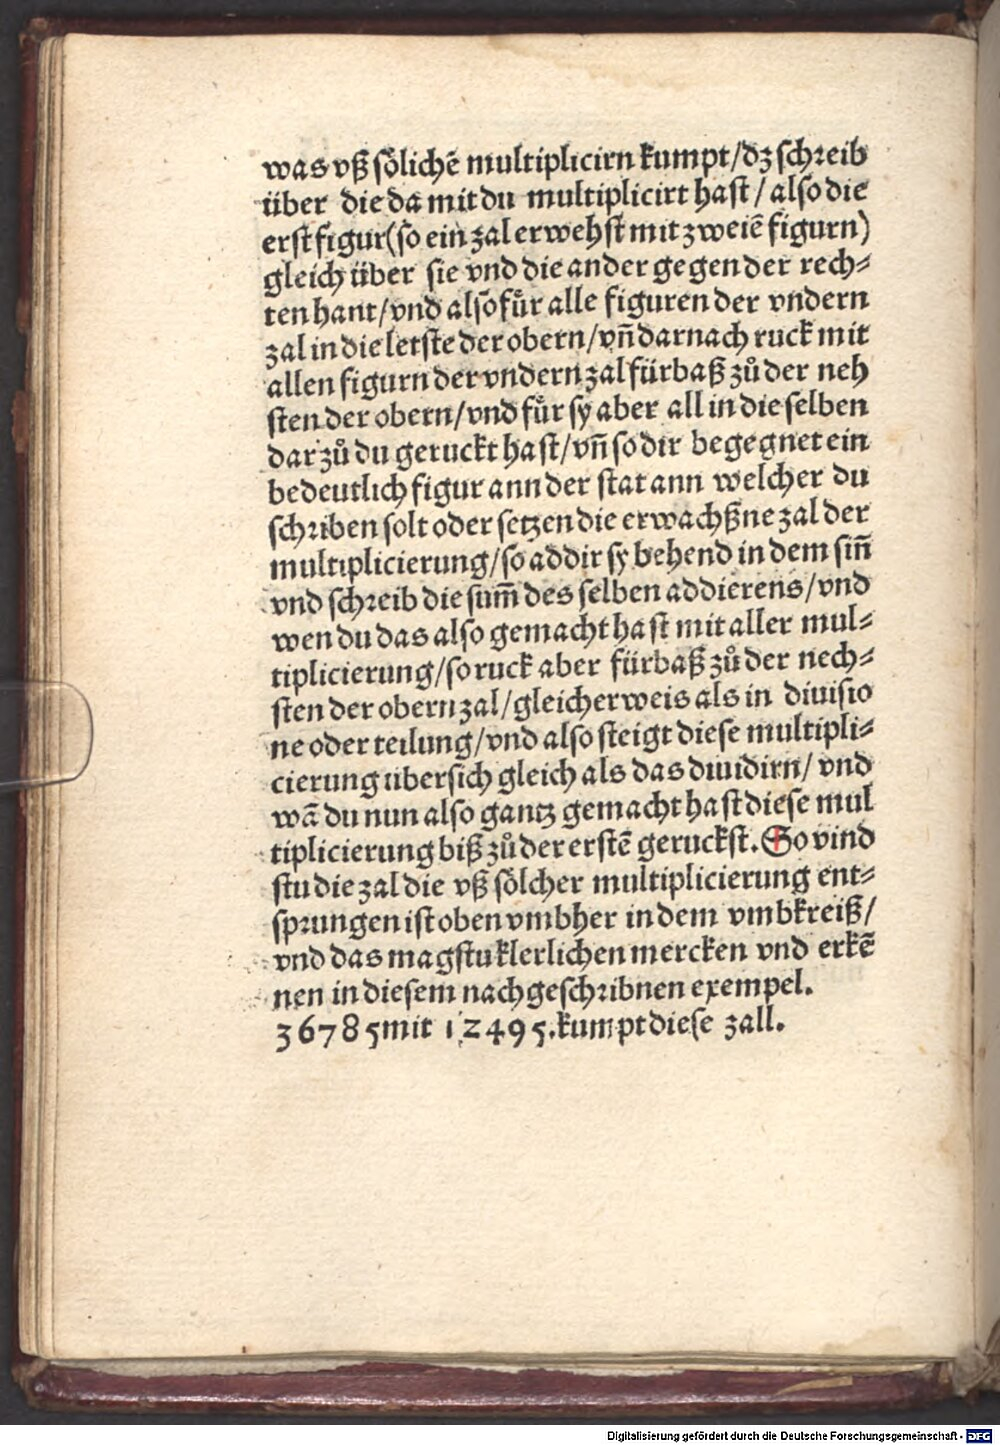 was vß sölichē multiplicirn kumpt/dz schreib
über die da mit du multiplicirt hast/ also die
erst figur(so ein zal erwehst mit zweiē figurn)
gleich über sie vnd die ander gegen der rech⸗
ten hant/vnd also fůr alle figuren der vndern
zal in die letste der obern/vn̄ darnach ruck mit
allen figurn der vndern zal fürbaß zů der neh
sten der obern/vnd fůr sy aber all in die selben
dar zů du geruckt hast/vn̄ so dir begegnet ein
bedeutlich figur ann der stat ann welcher du
schriben solt oder setzen die erwachßne zal der
multiplicierung/so addir sy behend in dem sin̄
vnd schreib die sum̄ des selben addierens/vnd
wen du das also gemacht hast mit aller mul⸗
tiplicierung/so ruck aber fürbaß zů der nech⸗
sten der obern zal/gleicher weis als in diuisio
ne oder teilung/vnd also steigt diese multipli⸗
cierung übersich gleich als das diuidirn/ vnd
wā du nun also gantz gemacht hast diese mul
tiplicierung biß zů der erstē geruckst. So vind
stu die zal die vß sölcher multiplicierung ent⸗
sprungen ist oben vmbher in dem vmbkreiß/
vnd das magstu klerlichen mercken vnd erkē
nen in diesem nachgeschribnen exempel.
36785 mit 12495. kumpt diese zall.
Digitalisierung gefördert durch die Deutsche Forschungsgemeinschaft - DFG